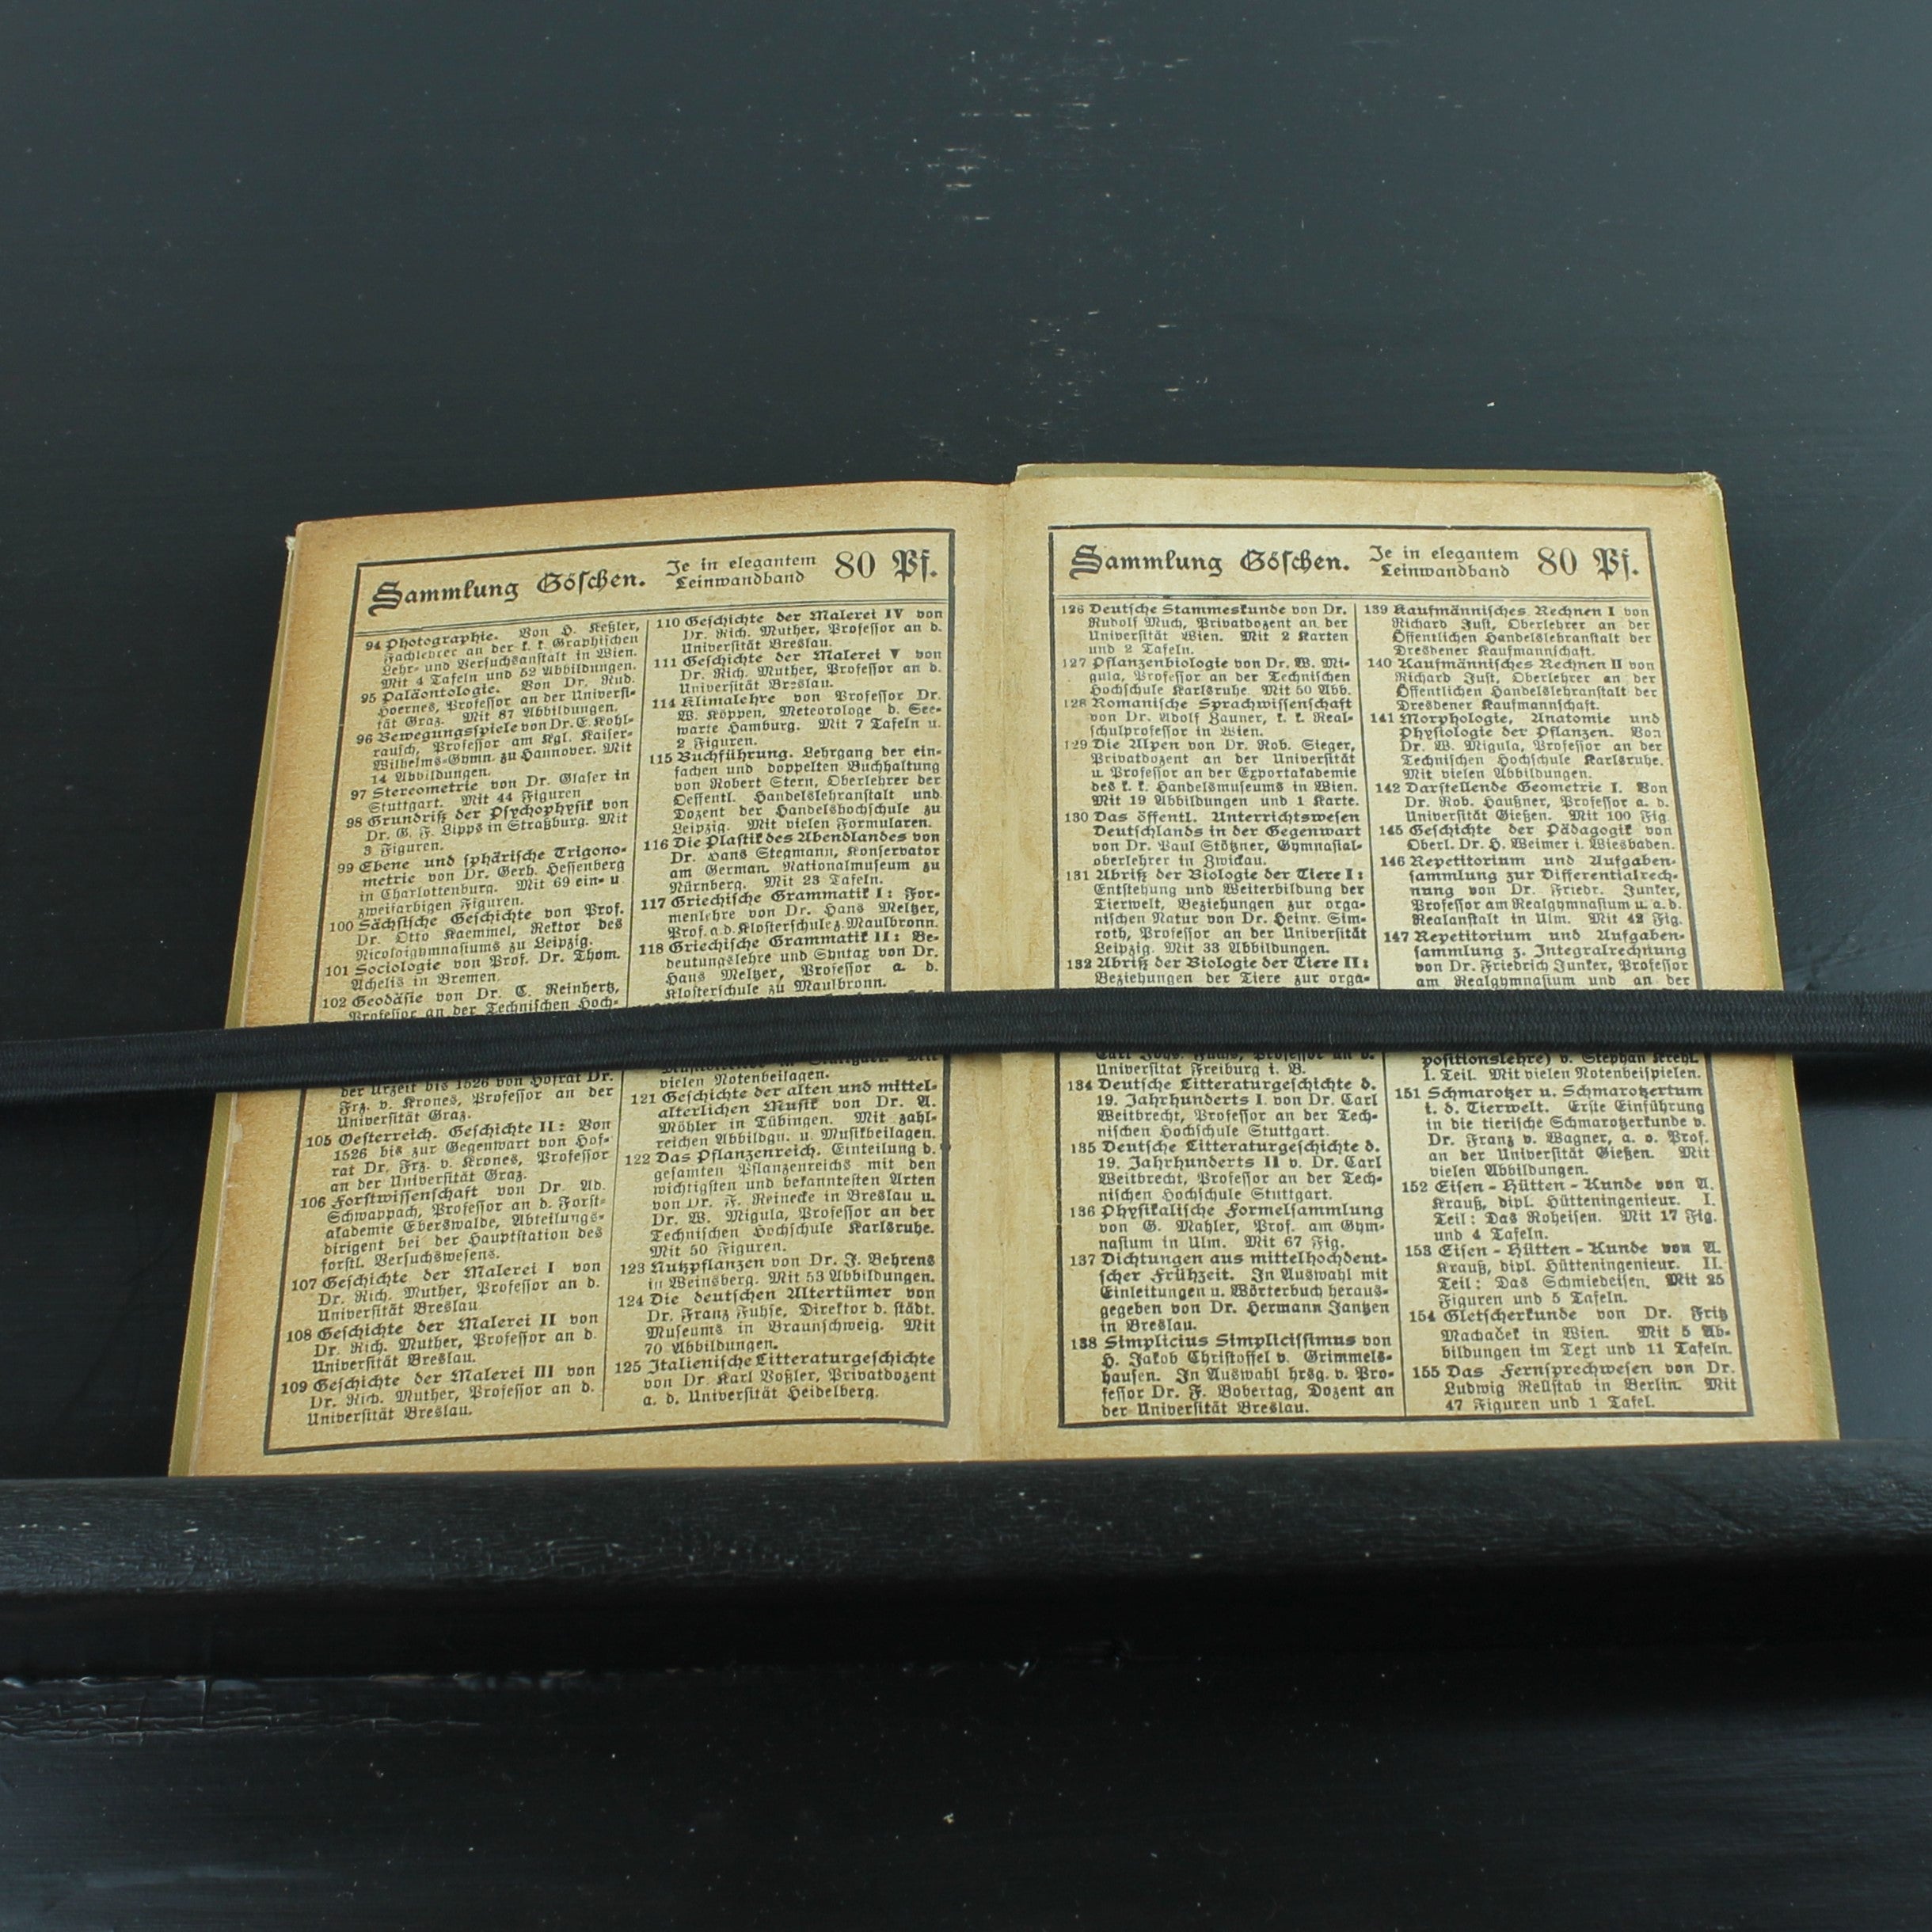 Sammlung Göschen. Je in elegantem Leinwandband 80 Pf.
94 Photographie. Von H. Keßler,
Fachlehrer an der k. k. Graphischen
Lehr- und Versuchsanstalt in Wien.
Mit 4 Tafeln und 52 Abbildungen.
95 Paläontologie. Von Dr. Rud.
Hoernes, Professor an der Universi-
tät Graz. Mit 87 Abbildungen.
96 Bewegungsspiele von Dr. E. Kohl-
rausch, Professor am Kgl. Kaiser-
Wilhelms-Gymn. zu Hannover. Mit
14 Abbildungen.
97 Stereometrie von Dr. Glaser in
Stuttgart. Mit 44 Figuren
98 Grundriß der Psychophysik von
Dr. G. F. Lipps in Straßburg. Mit
3 Figuren.
99 Ebene und sphärische Trigono-
metrie von Dr. Gerh. Hessenberg
in Charlottenburg. Mit 69 ein- u.
zweifarbigen Figuren.
100 Sächsische Geschichte von Prof.
Dr. Otto Kaemmel, Rektor des
Nicolaigymnasiums zu Leipzig.
101 Sociologie von Prof. Dr. Thom.
Achelis in Bremen.
102 Geodäsie von Dr. C. Reinhertz,
Professor an der Technischen Hoch-
der Urzeit bis 1526 von Hofrat Dr.
Frz. v. Krones, Professor an der
Universität Graz.
105 Oesterreich. Geschichte II: Von
1526 bis zur Gegenwart von Hof-
rat Dr. Frz. v. Krones, Professor
an der Universität Graz.
106 Forstwissenschaft von Dr. Ad.
Schwappach, Professor an d. Forst-
akademie Eberswalde, Abteilungs-
dirigent bei der Hauptstation des
forstl. Versuchswesens.
107 Geschichte der Malerei I von
Dr. Rich. Muther, Professor an d.
Universität Breslau
108 Geschichte der Malerei II von
Dr. Rich. Muther, Professor an d.
Universität Breslau.
109 Geschichte der Malerei III von
Dr. Rich. Muther, Professor an d.
Universität Breslau.
110 Geschichte der Malerei IV von
Dr. Rich. Muther, Professor an d.
Universität Breslau.
111 Geschichte der Malerei V von
Dr. Rich. Muther, Professor an d.
Universität Breslau.
114 Klimalehre von Professor Dr.
W. Köppen, Meteorologe d. See-
warte Hamburg. Mit 7 Tafeln u.
2 Figuren.
115 Buchführung. Lehrgang der ein-
fachen und doppelten Buchhaltung
von Robert Stern, Oberlehrer der
Oeffentl. Handelslehranstalt und
Dozent der Handelshochschule zu
Leipzig. Mit vielen Formularen.
116 Die Plastik des Abendlandes von
Dr. Hans Stegmann, Konservator
am German. Nationalmuseum zu
Nürnberg. Mit 23 Tafeln.
117 Griechische Grammatik I: For-
menlehre von Dr. Hans Meltzer,
Prof. a. d. Klosterschule z. Maulbronn.
118 Griechische Grammatik II: Be-
deutungslehre und Syntax von Dr.
Hans Meltzer, Professor a. d.
Klosterschule zu Maulbronn.
vielen Notenbeilagen.
121 Geschichte der alten und mittel-
alterlichen Musik von Dr. A.
Möhler in Tübingen. Mit zahl-
reichen Abbildgn. u. Musikbeilagen.
122 Das Pflanzenreich. Einteilung d.
gesamten Pflanzenreichs mit den
wichtigsten und bekanntesten Arten
von Dr. F. Reinecke in Breslau u.
Dr. W. Migula, Professor an der
Technischen Hochschule Karlsruhe.
Mit 50 Figuren.
123 Nutzpflanzen von Dr. J. Behrens
in Weinsberg. Mit 53 Abbildungen.
124 Die deutschen Altertümer von
Dr. Franz Fuhse, Direktor d. städt.
Museums in Braunschweig. Mit
70 Abbildungen.
125 Italienische Litteraturgeschichte
von Dr. Karl Voßler, Privatdozent
a. d. Universität Heidelberg.
Sammlung Göschen. Je in elegantem Leinwandband 80 Pf.
126 Deutsche Stammeskunde von Dr.
Rudolf Much, Privatdozent an der
Universität Wien. Mit 2 Karten
und 2 Tafeln.
127 Pflanzenbiologie von Dr. W. Mi-
gula, Professor an der Technischen
Hochschule Karlsruhe. Mit 50 Abb.
128 Romanische Sprachwissenschaft
von Dr. Adolf Zauner, k. k. Real-
schulprofessor in Wien.
129 Die Alpen von Dr. Rob. Sieger,
Privatdozent an der Universität
u. Professor an der Exportakademie
des k. k. Handelsmuseums in Wien.
Mit 19 Abbildungen und 1 Karte.
130 Das öffentl. Unterrichtswesen
Deutschlands in der Gegenwart
von Dr. Paul Stötzner, Gymnasial-
oberlehrer in Zwickau.
131 Abriß der Biologie der Tiere I:
Entstehung und Weiterbildung der
Tierwelt, Beziehungen zur orga-
nischen Natur von Dr. Heinr. Sim-
roth, Professor an der Universität
Leipzig. Mit 33 Abbildungen.
132 Abriß der Biologie der Tiere II:
Beziehungen der Tiere zur orga-
Universität Freiburg i. B.
134 Deutsche Litteraturgeschichte d.
19. Jahrhunderts I. von Dr. Carl
Weitbrecht, Professor an der Tech-
nischen Hochschule Stuttgart.
135 Deutsche Litteraturgeschichte d.
19. Jahrhunderts II v. Dr. Carl
Weitbrecht, Professor an der Tech-
nischen Hochschule Stuttgart.
136 Physikalische Formelsammlung
von G. Mahler, Prof. am Gym-
nasium in Ulm. Mit 67 Fig.
137 Dichtungen aus mittelhochdeut-
scher Frühzeit. In Auswahl mit
Einleitungen u. Wörterbuch heraus-
gegeben von Dr. Hermann Jantzen
in Breslau.
138 Simplicius Simplicissimus von
H. Jakob Christoffel v. Grimmels-
hausen. In Auswahl hrsg. v. Pro-
fessor Dr. F. Bobertag, Dozent an
der Universität Breslau.
139 Kaufmännisches Rechnen I von
Richard Just, Oberlehrer an der
Öffentlichen Handelslehranstalt der
Dresdener Kaufmannschaft.
140 Kaufmännisches Rechnen II von
Richard Just, Oberlehrer an der
Öffentlichen Handelslehranstalt der
Dresdener Kaufmannschaft.
141 Morphologie, Anatomie und
Physiologie der Pflanzen. Von
Dr. W. Migula, Professor an der
Technischen Hochschule Karlsruhe.
Mit vielen Abbildungen.
142 Darstellende Geometrie I. Von
Dr. Rob. Haußner, Professor a. d.
Universität Gießen. Mit 100 Fig.
145 Geschichte der Pädagogik von
Oberl. Dr. H. Weimer i. Wiesbaden.
146 Repetitorium und Aufgaben-
sammlung zur Differentialrech-
nung von Dr. Friedr. Junker,
Professor am Realgymnasium u. a. d.
Realanstalt in Ulm. Mit 42 Fig.
147 Repetitorium und Aufgaben-
sammlung z. Integralrechnung
von Dr. Friedrich Junker, Professor
am Realgymnasium und an der
positionslehre) v. Stephan Krehl.
I. Teil. Mit vielen Notenbeispielen.
151 Schmarotzer u. Schmarotzertum
i. d. Tierwelt. Erste Einführung
in die tierische Schmarotzerkunde v.
Dr. Franz v. Wagner, a. o. Prof.
an der Universität Gießen. Mit
vielen Abbildungen.
152 Eisen-Hütten-Kunde von A.
Krauß, dipl. Hütteningenieur. I.
Teil: Das Roheisen. Mit 17 Fig.
und 4 Tafeln.
153 Eisen-Hütten-Kunde von A.
Krauß, dipl. Hütteningenieur. II.
Teil: Das Schmiedeisen. Mit 25
Figuren und 5 Tafeln.
154 Gletscherkunde von Dr. Fritz
Machaček in Wien. Mit 5 Ab-
bildungen im Text und 11 Tafeln.
155 Das Fernsprechwesen von Dr.
Ludwig Rellstab in Berlin. Mit
47 Figuren und 1 Tafel.